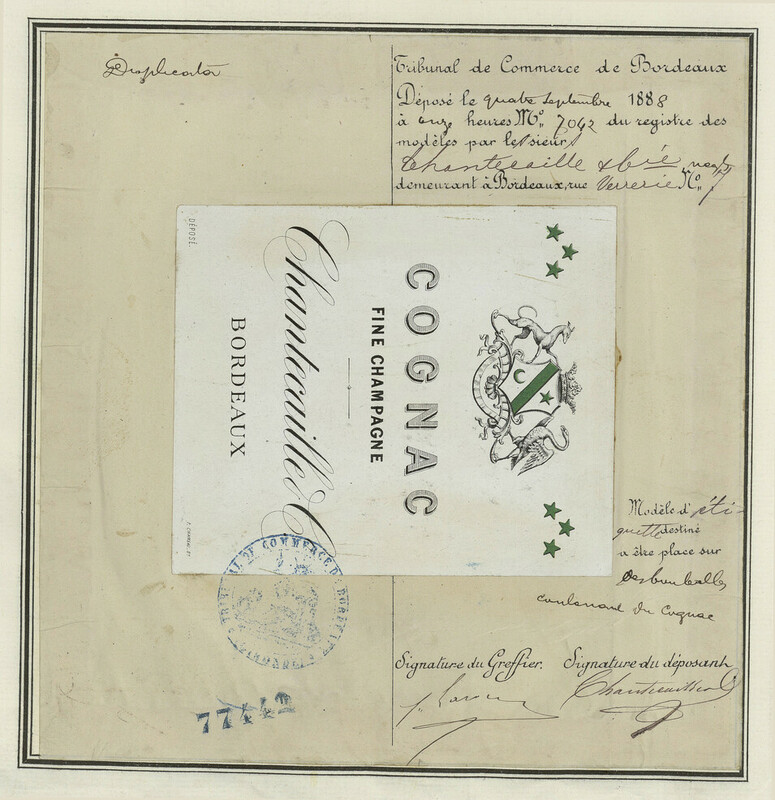 Duplicata
Tribunal de Commerce de Bordeaux
Déposé le quatre Septembre 1888
à onze heures No. 7042 du registre des
modèles par le sieur
Chantecaille & Cie negts
demeurant à Bordeaux, rue Verrerie No. 7
COGNAC
FINE CHAMPAGNE
Chantecaille & C
BORDEAUX
DÉPOSÉ.
Modèle d'éti-
quette destiné
a être place sur
des bouteilles
contenant du Cognac
TRIBUNAL DE COMMERCE DE BORDEAUX
Signature du Greffier. Signature du déposant
Chantecaille & Co
77442